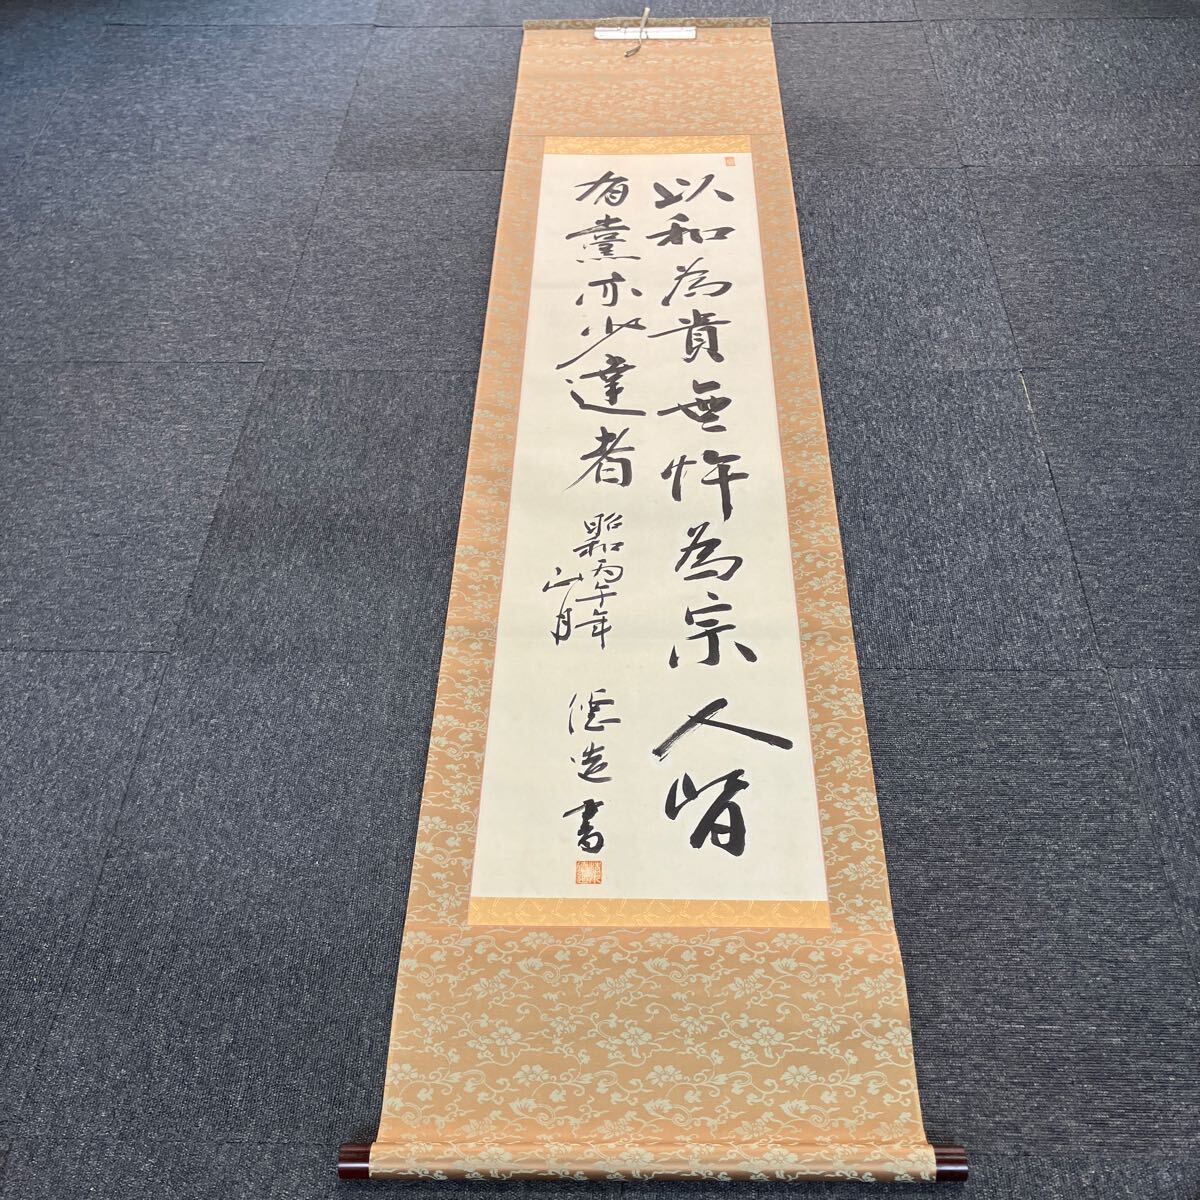 以和為貴無忤為宗人皆
有黨亦少達者
昭和丙午年
徳造書